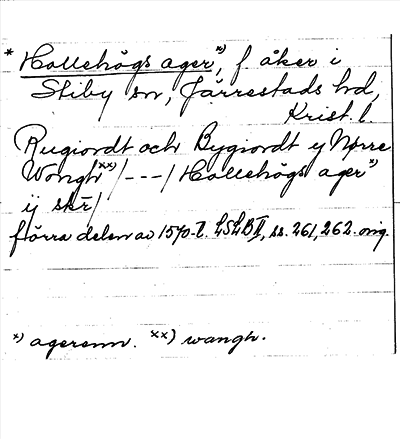 * Hallehögs ager *), f åker i
Stiby sn, Järrestads hd,
Krist. l.
Rugiordt och Bygiordt y Nørre
Wongh xx) /---/ Hallehögs ager *)
ij skr/
förra delen av 1570-t. LSLB II, ss. 261, 262. orig.
*) agerenn. xx) wangh.